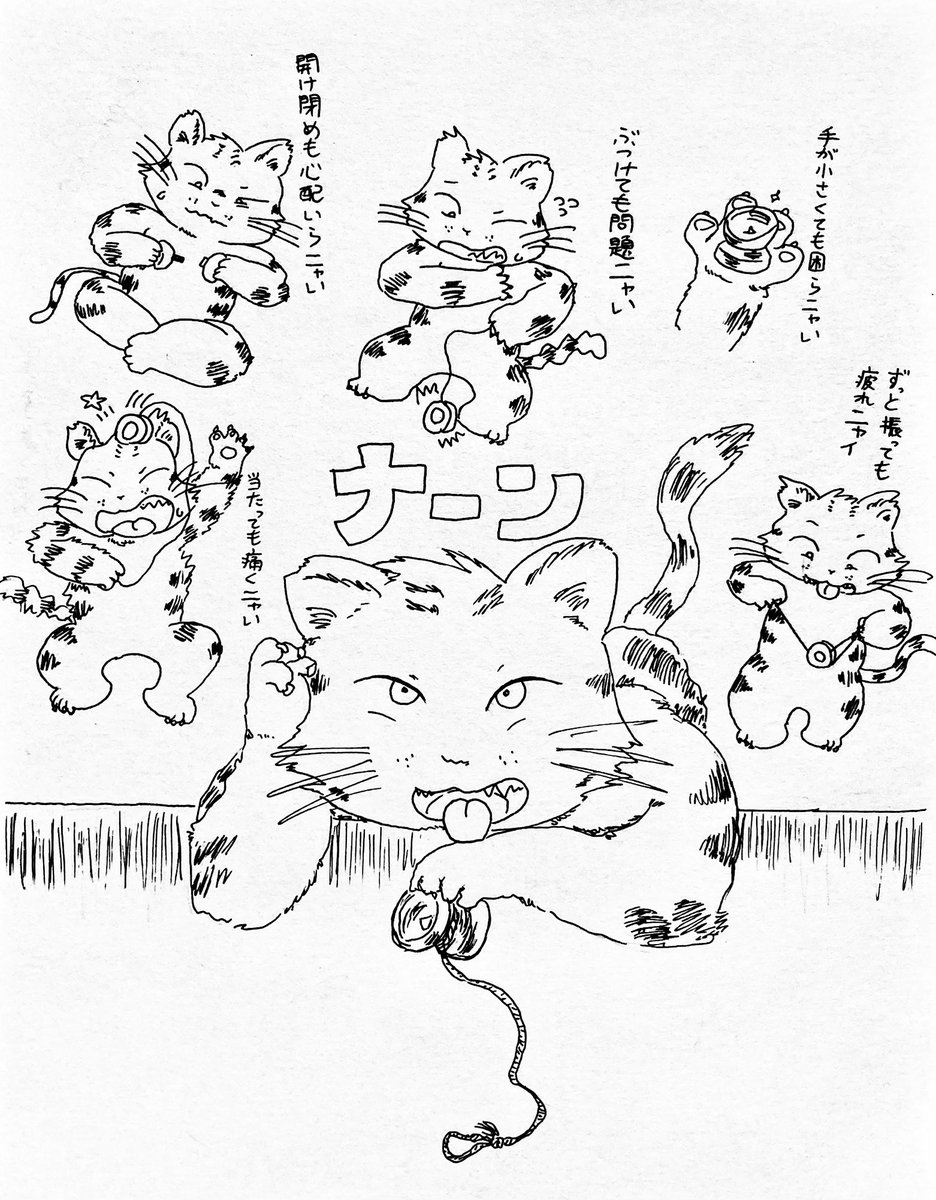 手が小さくても困らニャい
ぶつけても問題ニャい
開け閉めも心配いらニャい
ずっと振っても
疲れニャイ
当たっても痛くニャい
ナーン